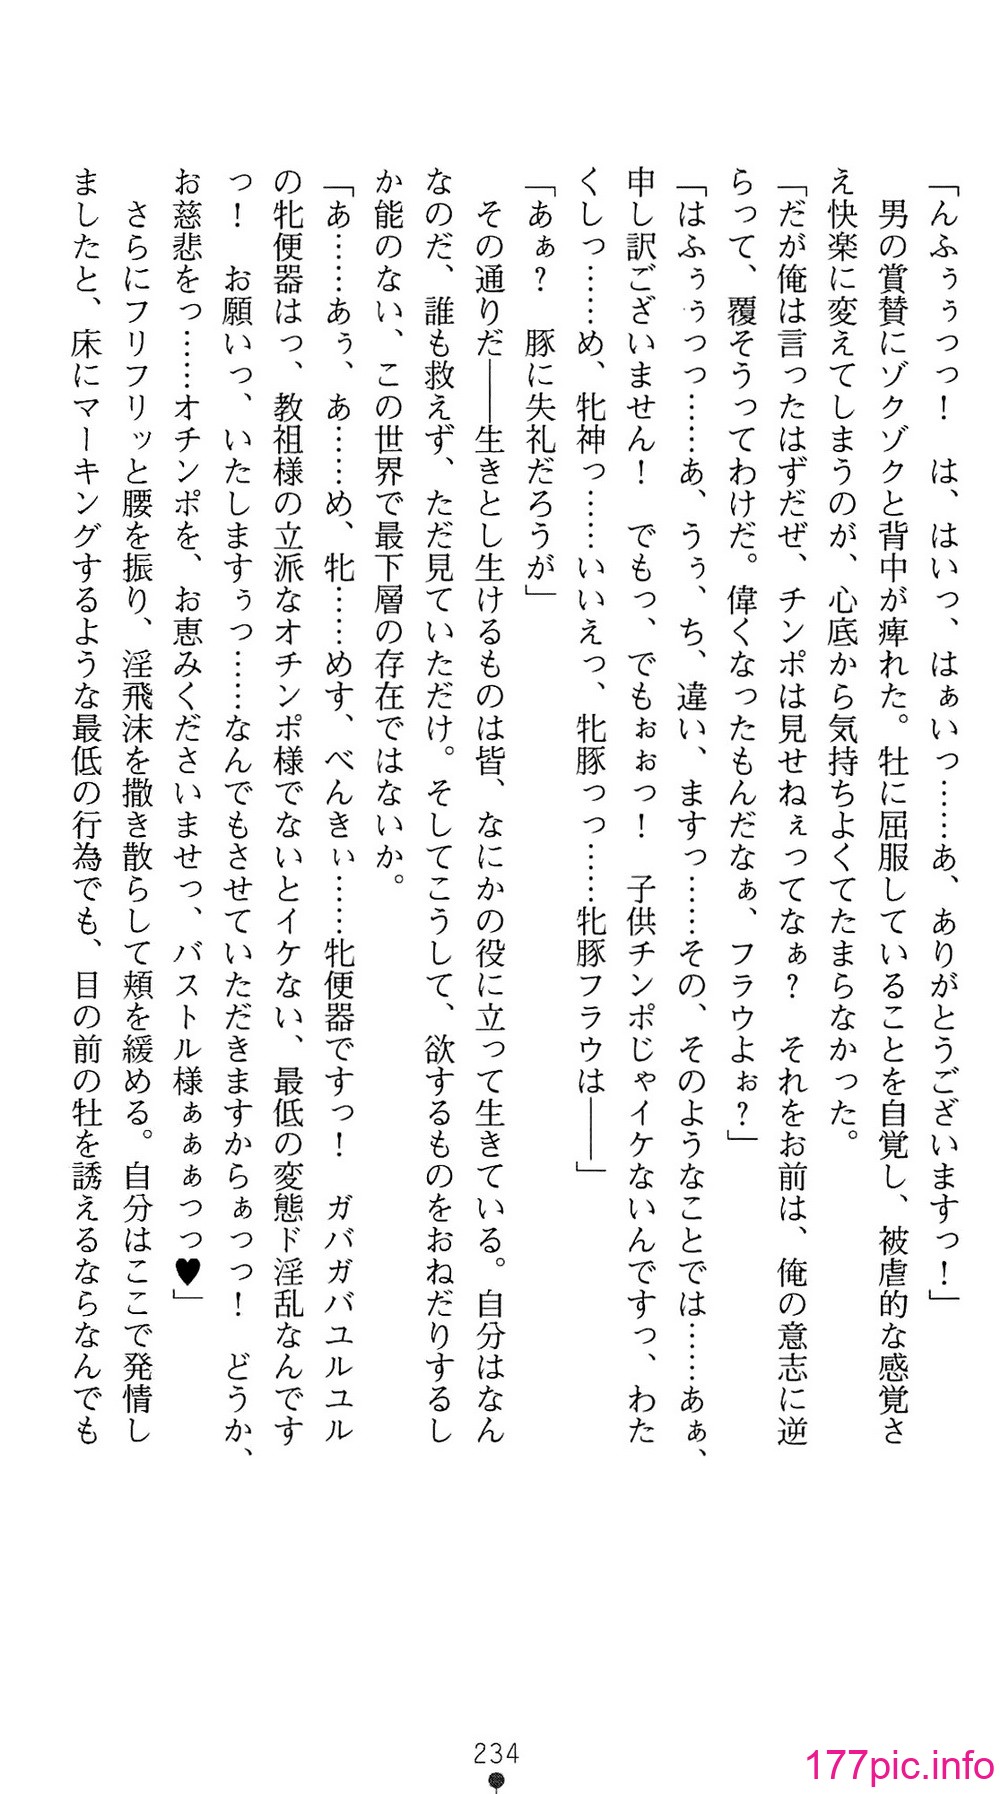 「んふぅぅっっ！　は、はいっ、はぁいっ……あ、ありがとうございますっ！」
　男の賞賛にゾクゾクと背中が痺れた。牡に屈服していることを自覚し、被虐的な感覚さ
え快楽に変えてしまうのが、心底から気持ちよくてたまらなかった。
「だが俺は言ったはずだぜ、チンポは見せねぇってなぁ？　それをお前は、俺の意志に逆
らって、覆そうってわけだ。偉くなったもんだなぁ、フラウよぉ？」
「はふぅぅっっ……あ、うぅ、ち、違い、ますっ……その、そのようなことでは……あぁ、
申し訳ございません！　でもっ、でもぉぉっ！　子供チンポじゃイケないんですっ、わた
くしっ……め、牝神っ……いいえっ、牝豚っっ……牝豚フラウは――」
「あぁ？　豚に失礼だろうが」
　その通りだ――生きとし生けるものは皆、なにかの役に立って生きている。自分はなん
なのだ、誰も救えず、ただ見ていただけ。そしてこうして、欲するものをおねだりするし
か能のない、この世界で最下層の存在ではないか。
「あ……あぅ、あ……め、牝……めす、べんきぃ……牝便器ですっ！　ガバガバユルユル
の牝便器はっ、教祖様の立派なオチンポ様でないとイケない、最低の変態ド淫乱なんです
っ！　お願いっ、いたしますぅっ……なんでもさせていただきますからぁっっ！　どうか、
お慈悲をっ……オチンポを、お恵みくださいませっ、バストル様ぁぁぁっっ♥」
　さらにフリフリッと腰を振り、淫飛沫を撒き散らして頬を緩める。自分はここで発情し
ましたと、床にマーキングするような最低の行為でも、目の前の牡を誘えるならなんでも
234
177pic.info